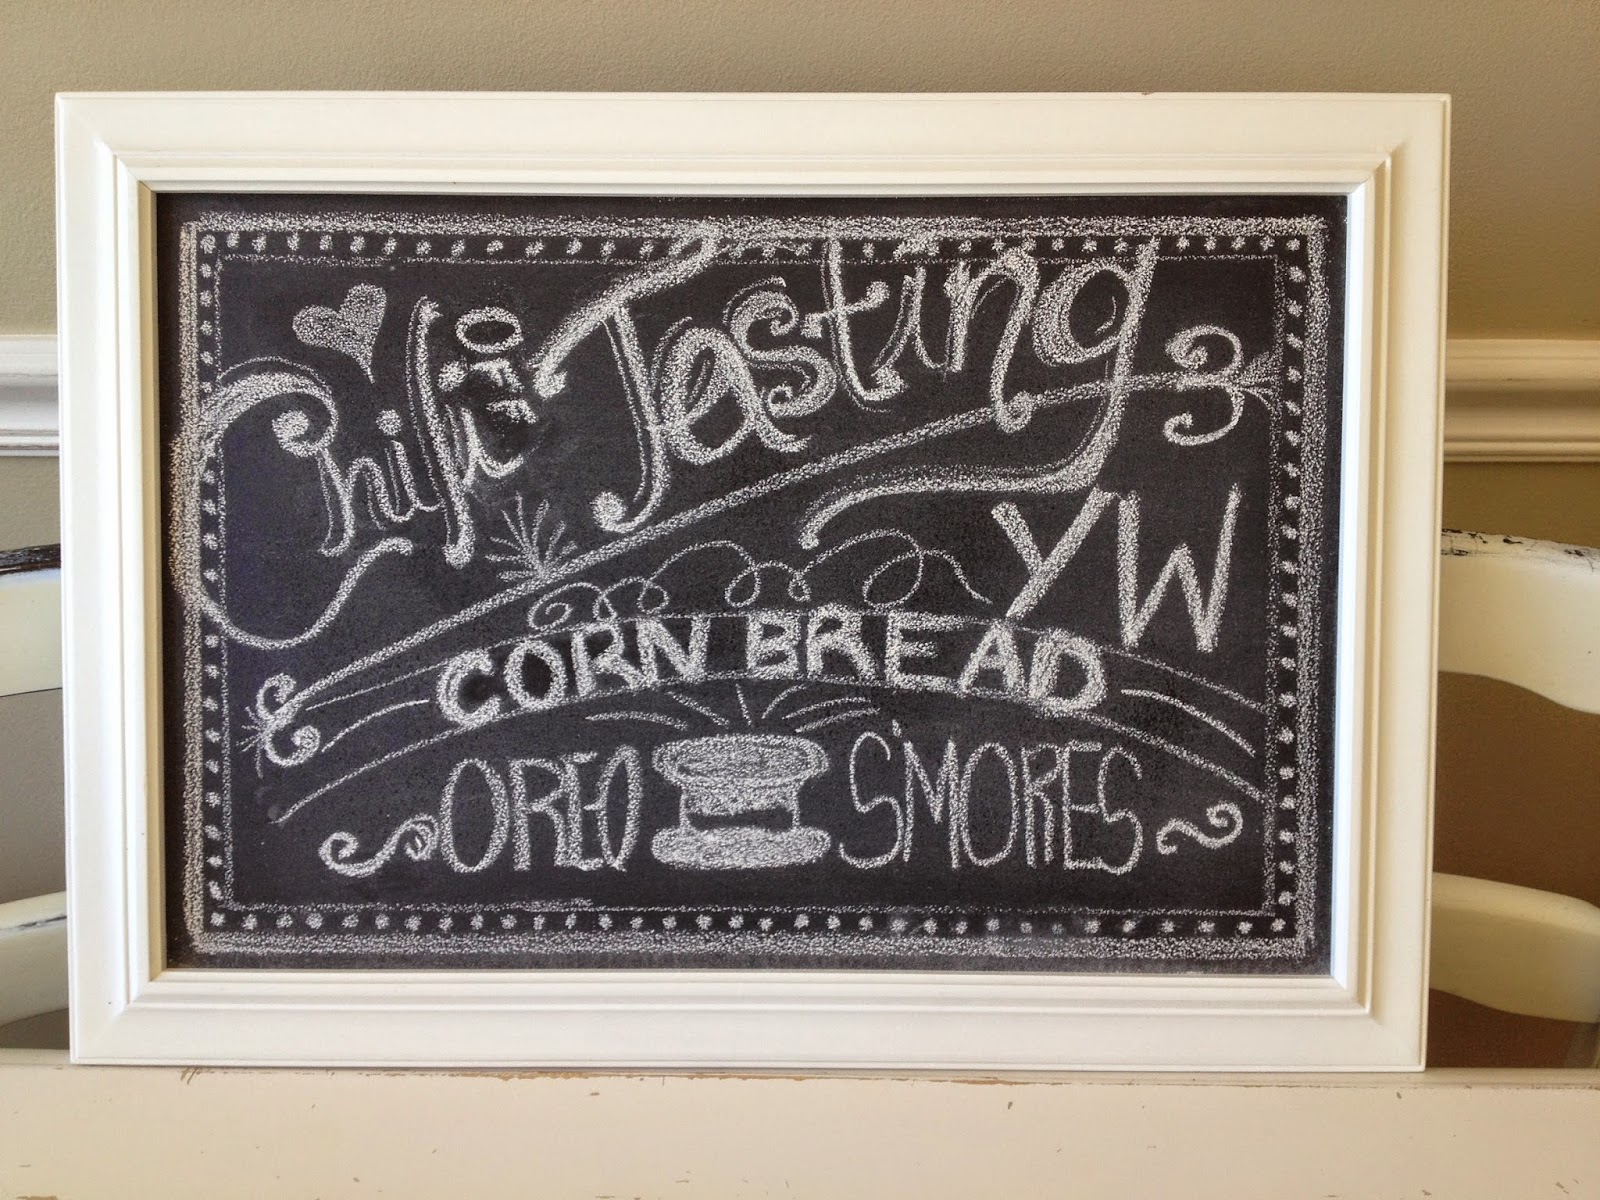 Chili Tasting
YW
CORN BREAD
OREO S'MORES